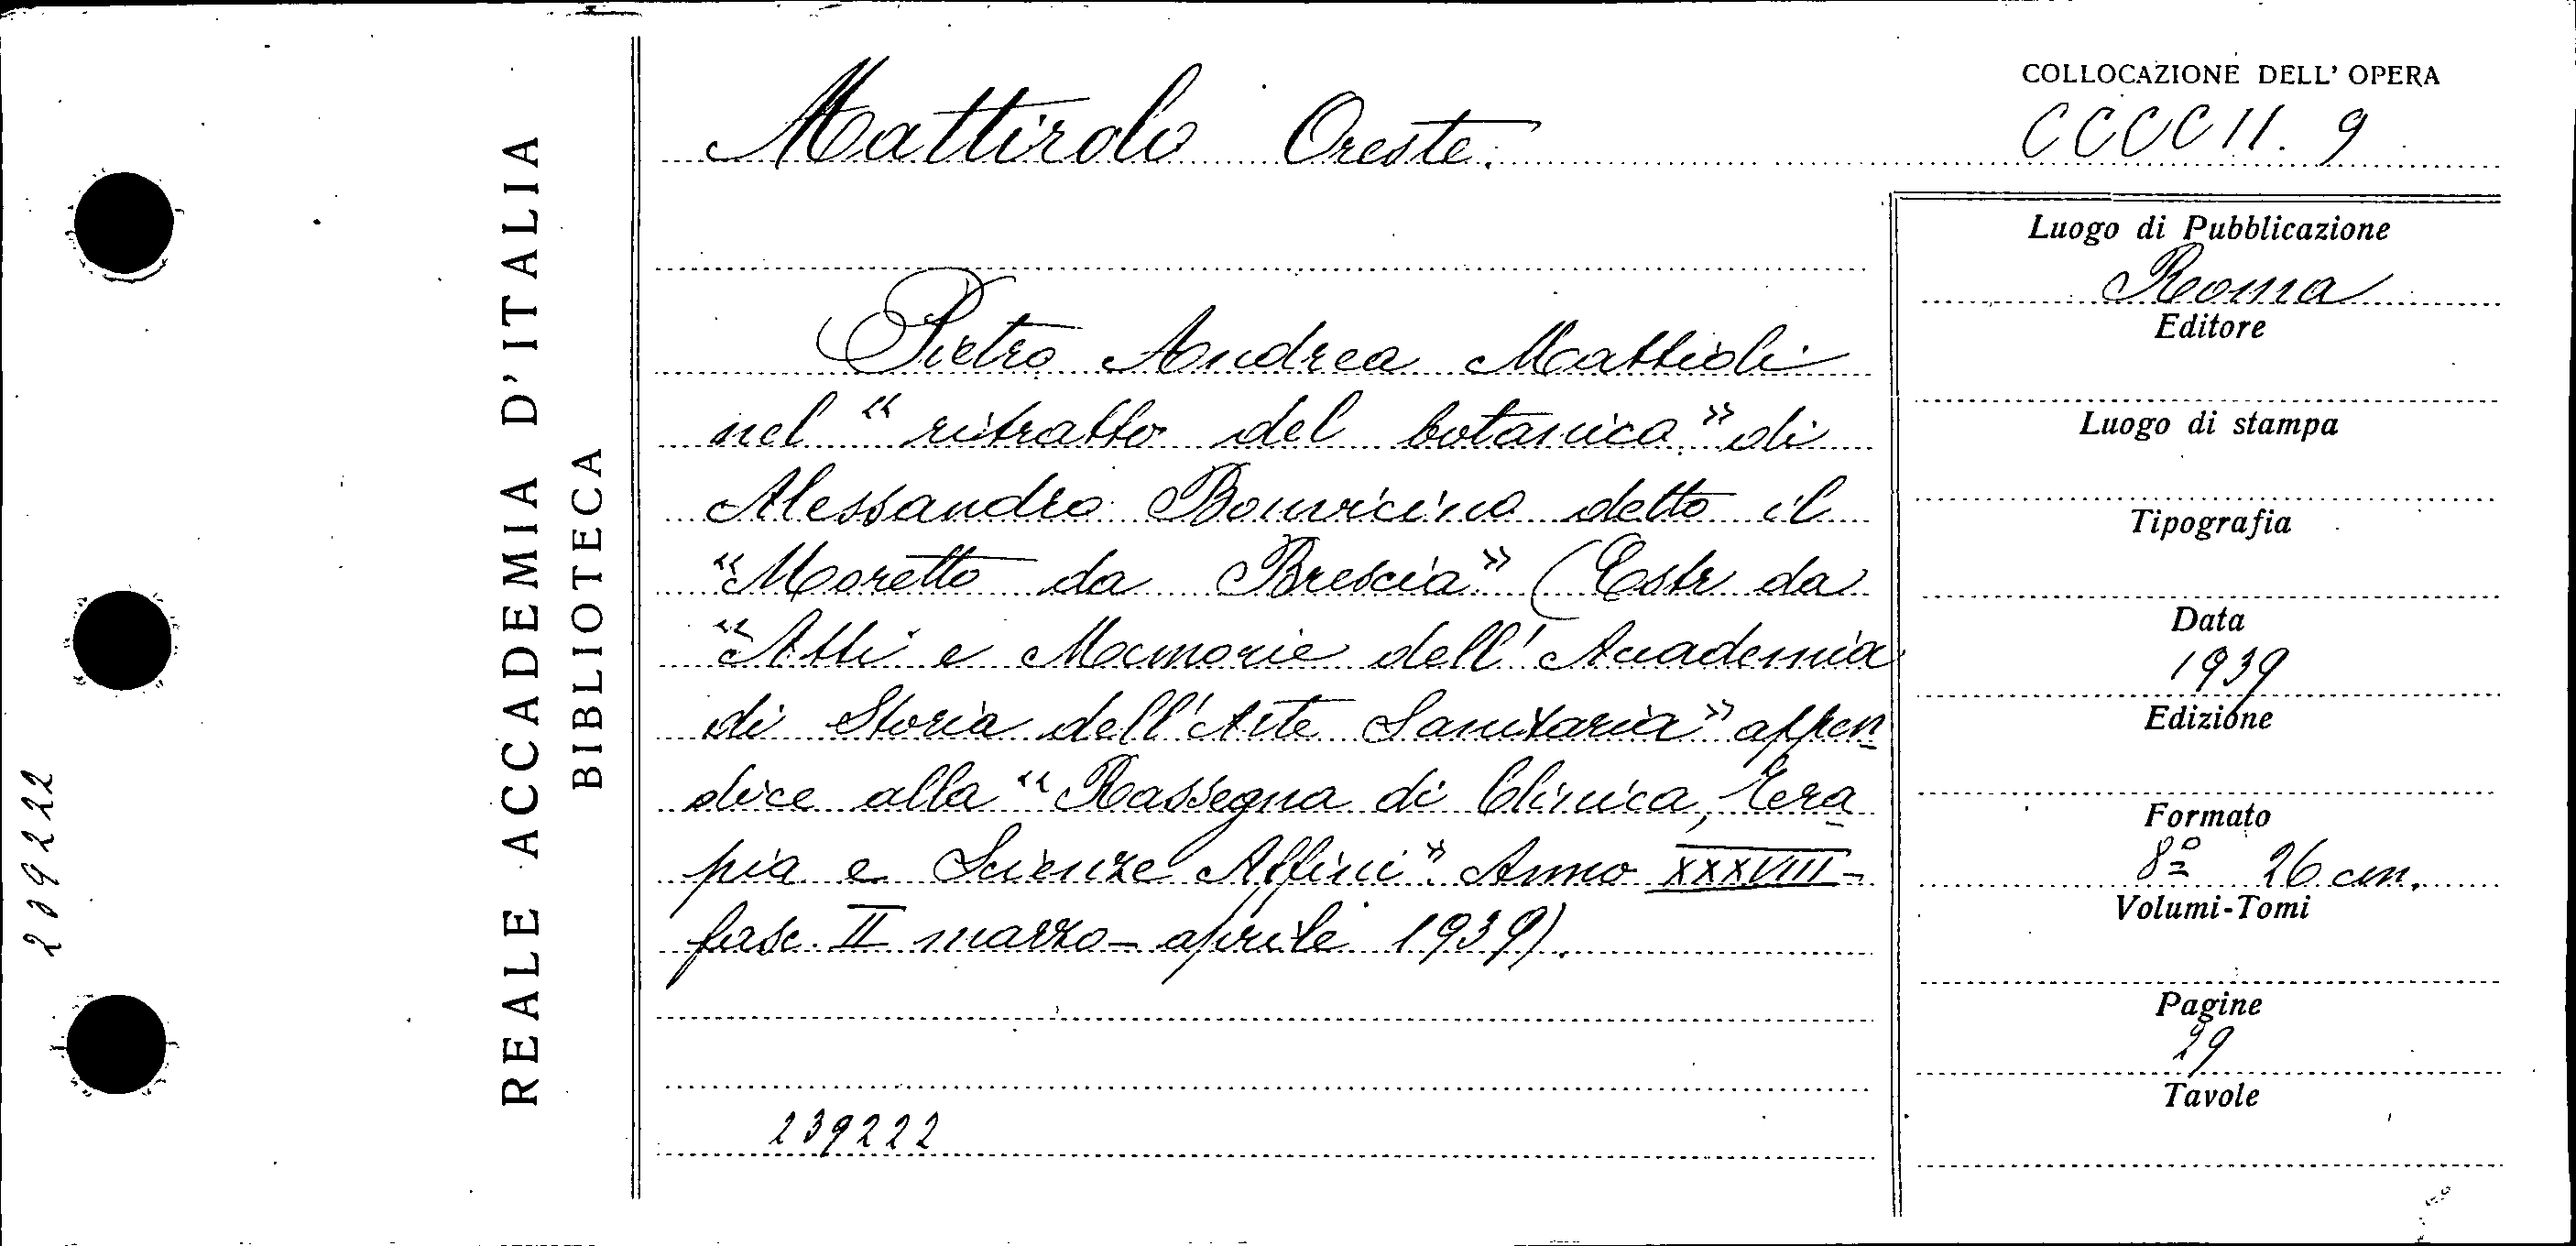 Mattirolo Oreste.
COLLOCAZIONE DELL' OPERA
CCCCII. 9
REALE ACCADEMIA D'ITALIA
BIBLIOTECA
239222
Pietro Andrea Mattioli
nel “ritratto del botanico” di
Alessandro Bonvicino detto il
“Moretto da Brescia” (Estr da
“Atti e Memorie dell'Accademia
di Storia dell'Arte Sanitaria” appen-
dice alla “Rassegna di Clinica, Tera-
pia e Scienze Affini”. Anno XXXVIII-
fasc. II marzo-aprile 1939).
239222
Luogo di Pubblicazione
Roma
Editore
Luogo di stampa
Tipografia
Data
1939
Edizione
Formato
8º 26 cm.
Volumi-Tomi
Pagine
29
Tavole